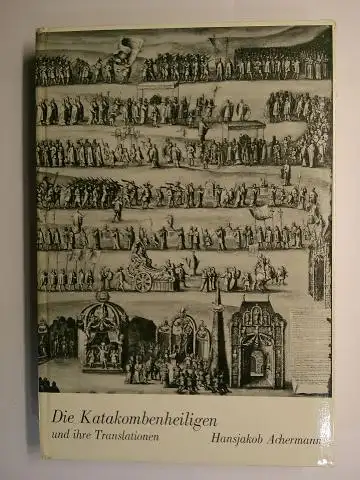 Die Katakombenheiligen
und ihre Translationen Hansjakob Achermann